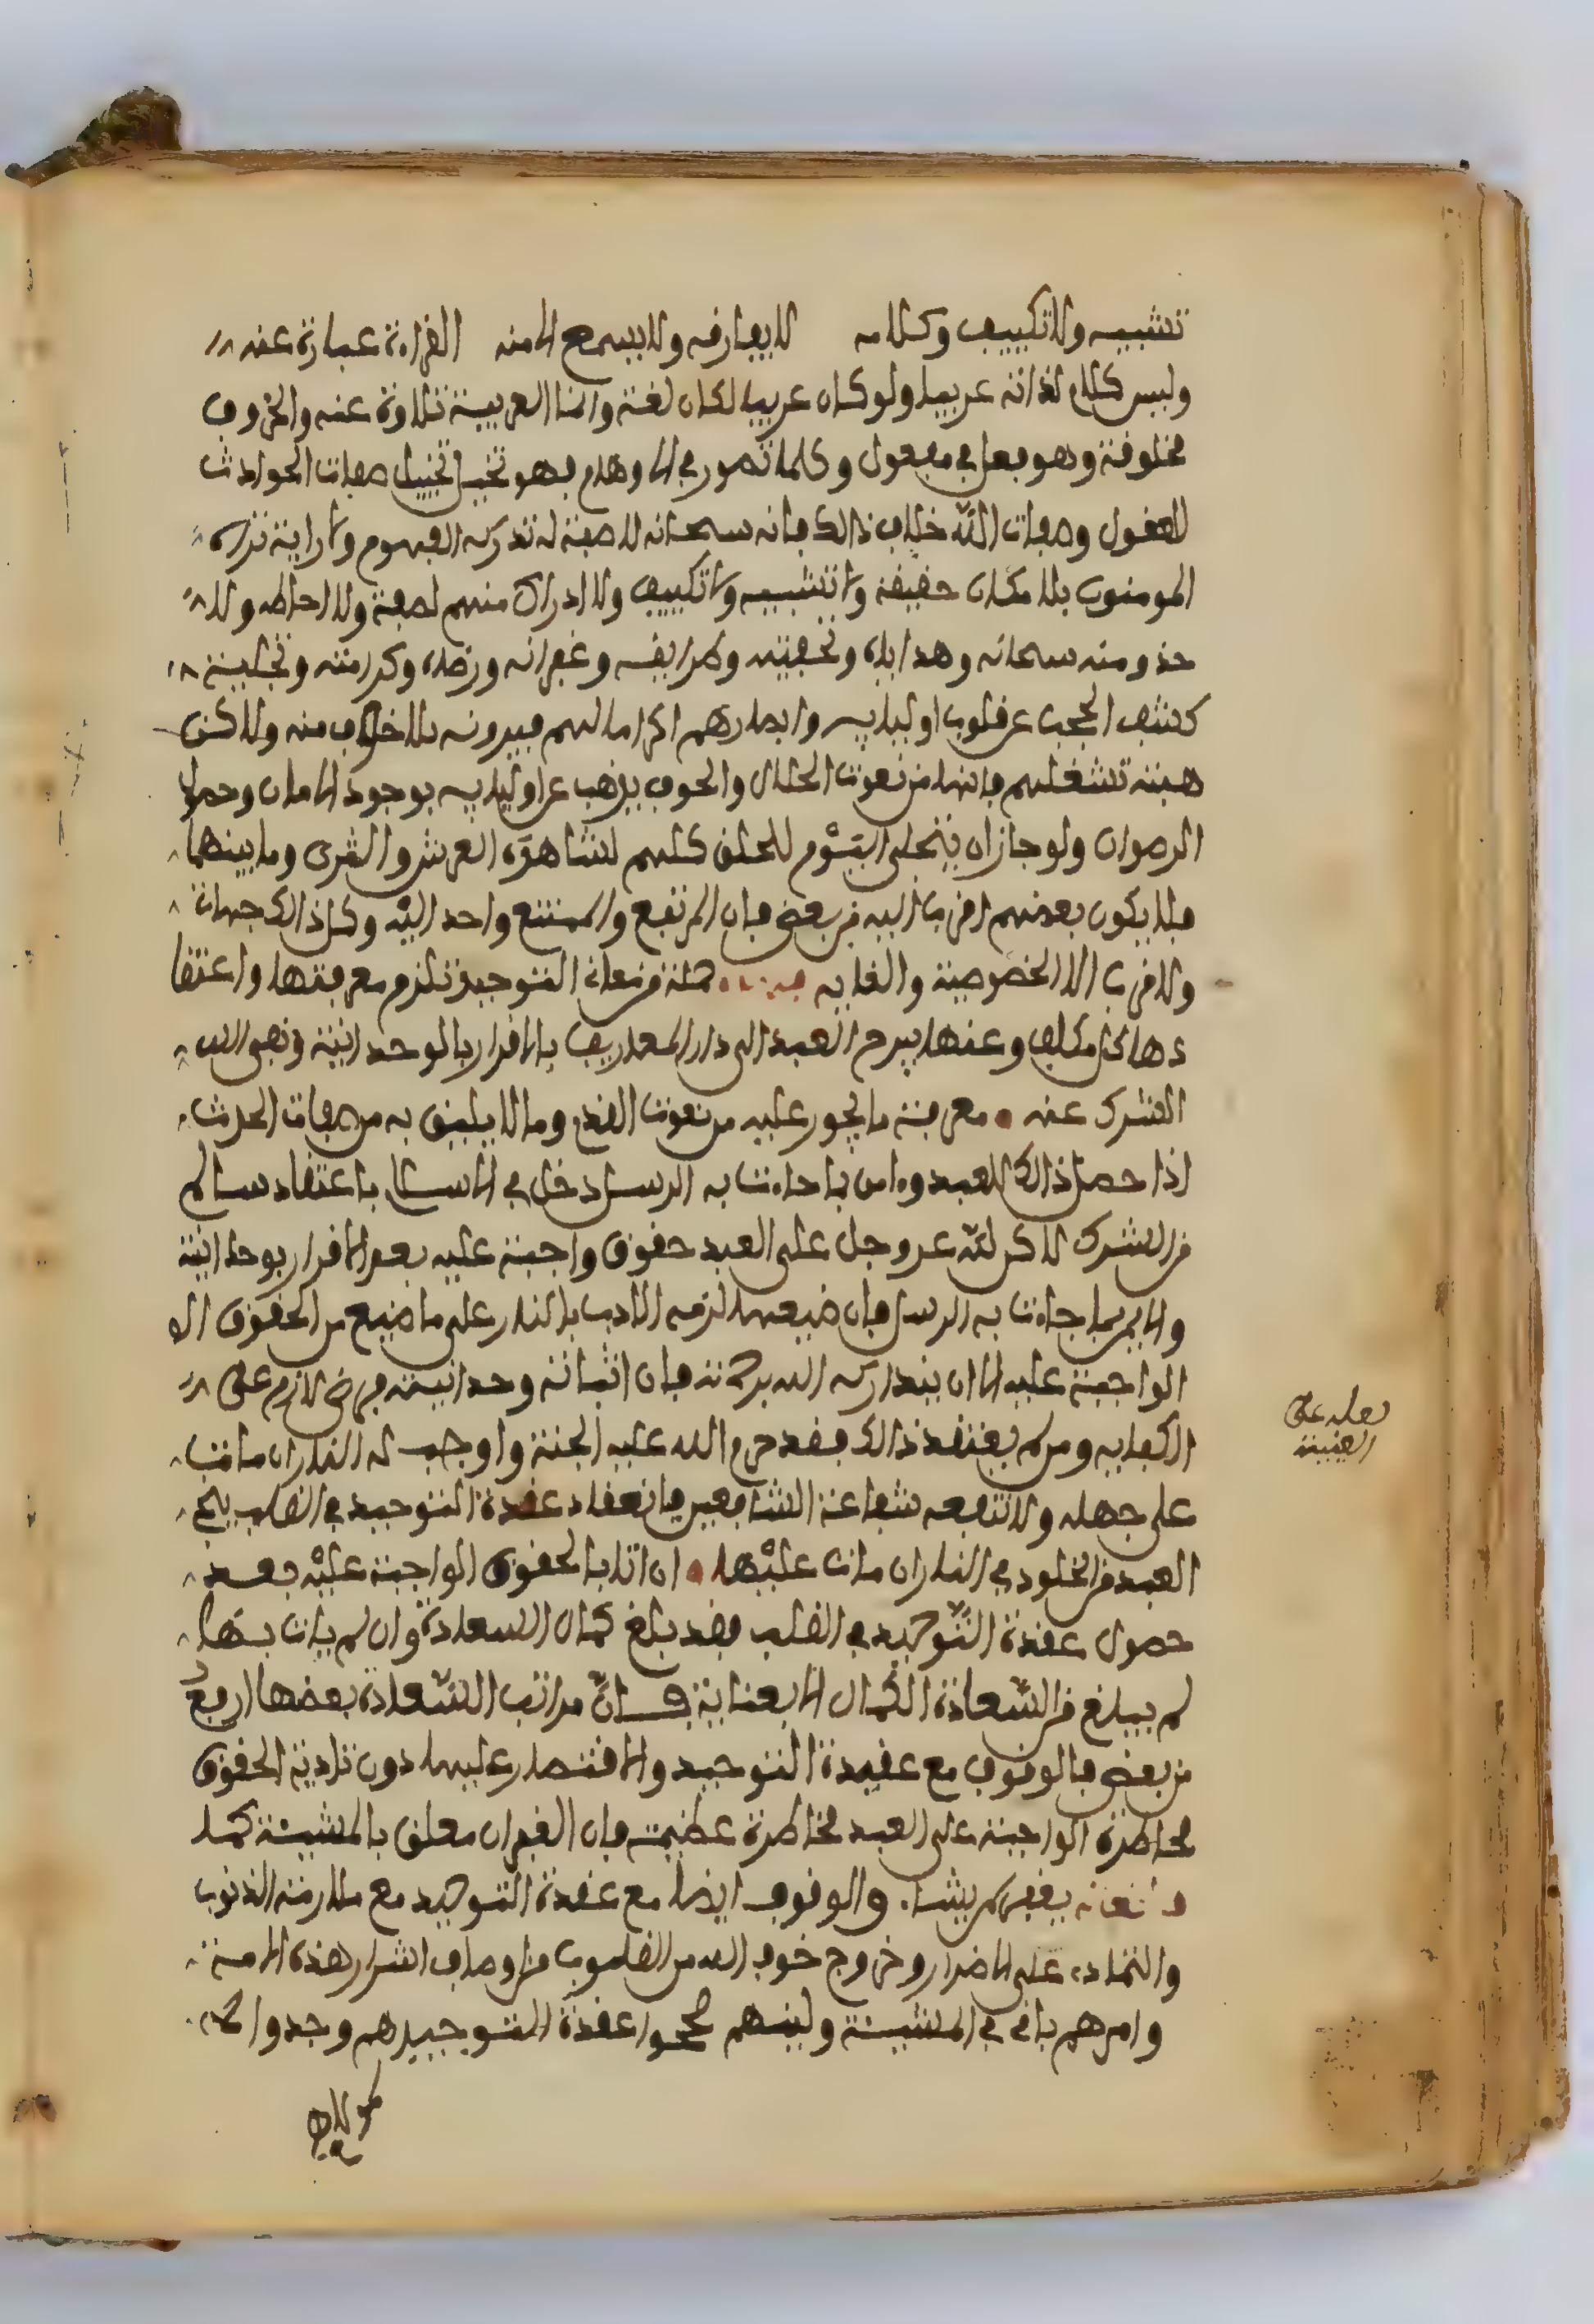 تشبيه ولا تكييف وكلامه لا يفارقه ولا يسمع الا منه القراءة عبارة عنه
وليس كلام لذاته عربيا ولو كان عربيا لكان لغة وانما العربية تلاوة عنه والحروف
مخلوقة وهو فعل في مفعول وكلما تصور في الاوهام فهو تخييل صفات الحوادث
للعقول وصفات الله خلاف ذالك فانه سبحانه لا صفة له تدركه الفهوم ولا راية تراه
المومنون بلا مكان حقيقة ولا تشبيه ولا تكييف ولا ادراك منهم لصفة ولا احاطه ولا
حد ومنه سبحانه وهدايله وتحقيته وطرايفه وغفرانه ورضاه وكرامته وتجليه
كشف الحجب عن قلوب اوليايه وابصارهم اكراما لهم فيرونه بلا خوف منه ولاكن
هيبته تشغلهم فانها من نعوت الجلال والخوف يذهب عن اوليايه بوجود الامان وحصول
الرضوان ولو جاز ان يتجلى اليوم للخلق كلهم لشاهده العرش والثرى وما بينهما
فلا يكون بعضهم اقرب اليه من بعض فان المرتفع والمتضع واحد اليه وكذالك جهات
ولا قرب الا الخصوصية والغايه جملة من معاني التوحيد تلزم معرفتها واعتقا
دها كل مكلف وعنها يبرح العبد الى دار المعاريف بالاقرار بالوحدانية ونفي
الشرك عنه معرفة ما يجوز عليه من نعوت القدم وما لا يليق به من صفات الحدث
اذا حصل ذالك للعبد وءامن بما جاءت به الرسل دخل في الاسلام باعتقاد سالم
من الشرك لاكن لله عز وجل على العبد حقوق واجبة عليه بعد الاقرار بوحدانية
والايمن بما جاءت به الرسل فان ضيعها لزمه الادب بالنار على ما ضيع من الحقوق الا
الواجبة عليه الا ان يتداركه الله برحمته فان اثباته وحدانيته فرض لازم على
الكفايه ومن لم يعتقد ذالك فقد حرم الله عليه الجنة واوجب له النار ان مات
على جهله ولا تنفعه شفاعة الشافعين فانعقاد عقدة التوحيد في القلب ينج
العبد من الخلود في النار ان مات عليها ان اتا بالحقوق الواجبة عليه بعد
حصول عقدة التوحيد في القلب فقد بلغ كمال السعادة وان لم يات بها
لم يبلغ من السعادة الكمال الا بعناية فان مراتب السعادة بعضها ارفع
من بعض فالوقوف مع عقيدة التوحيد والاقتصار عليها دون تادية الحقوق
مخاطرة الواجبة على العبد مخاطرة عظيمة فان الغفران معلق بالمشيئة كما
يغفر لمن يشا. والوقوف ايضا مع عقدة التوحيد مع ملازمة الذنوب
والتمادي على الاضرار وخروج خوف الله من القلوب من اوصاف اشرار هذه الامة
وامرهم باقي في المشيئة وليتهم صححوا عقدة التوحيدهم وجدوا
فعله على